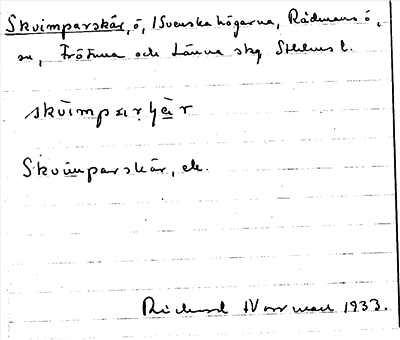 Skvimparskär, ö, i Svenska högarna, Rådmansö,
sn, Frötuna och Länna skg Sthlms l.
skvìmparʃæ̀r
Skvimparskär, ek.
Rickard Worrman 1933.